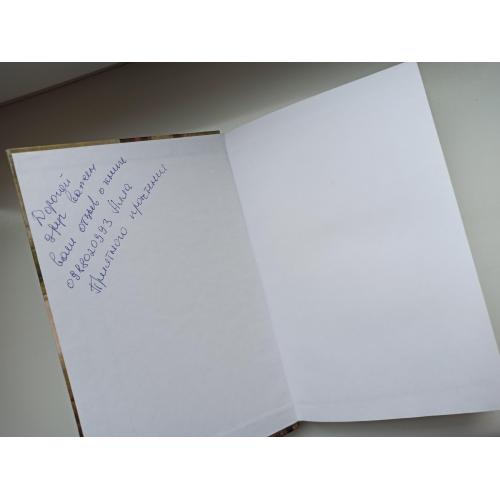 Дорогой
друг важен
Ваш отзыв о книге
0988020993 Алла
Приятного прочтения